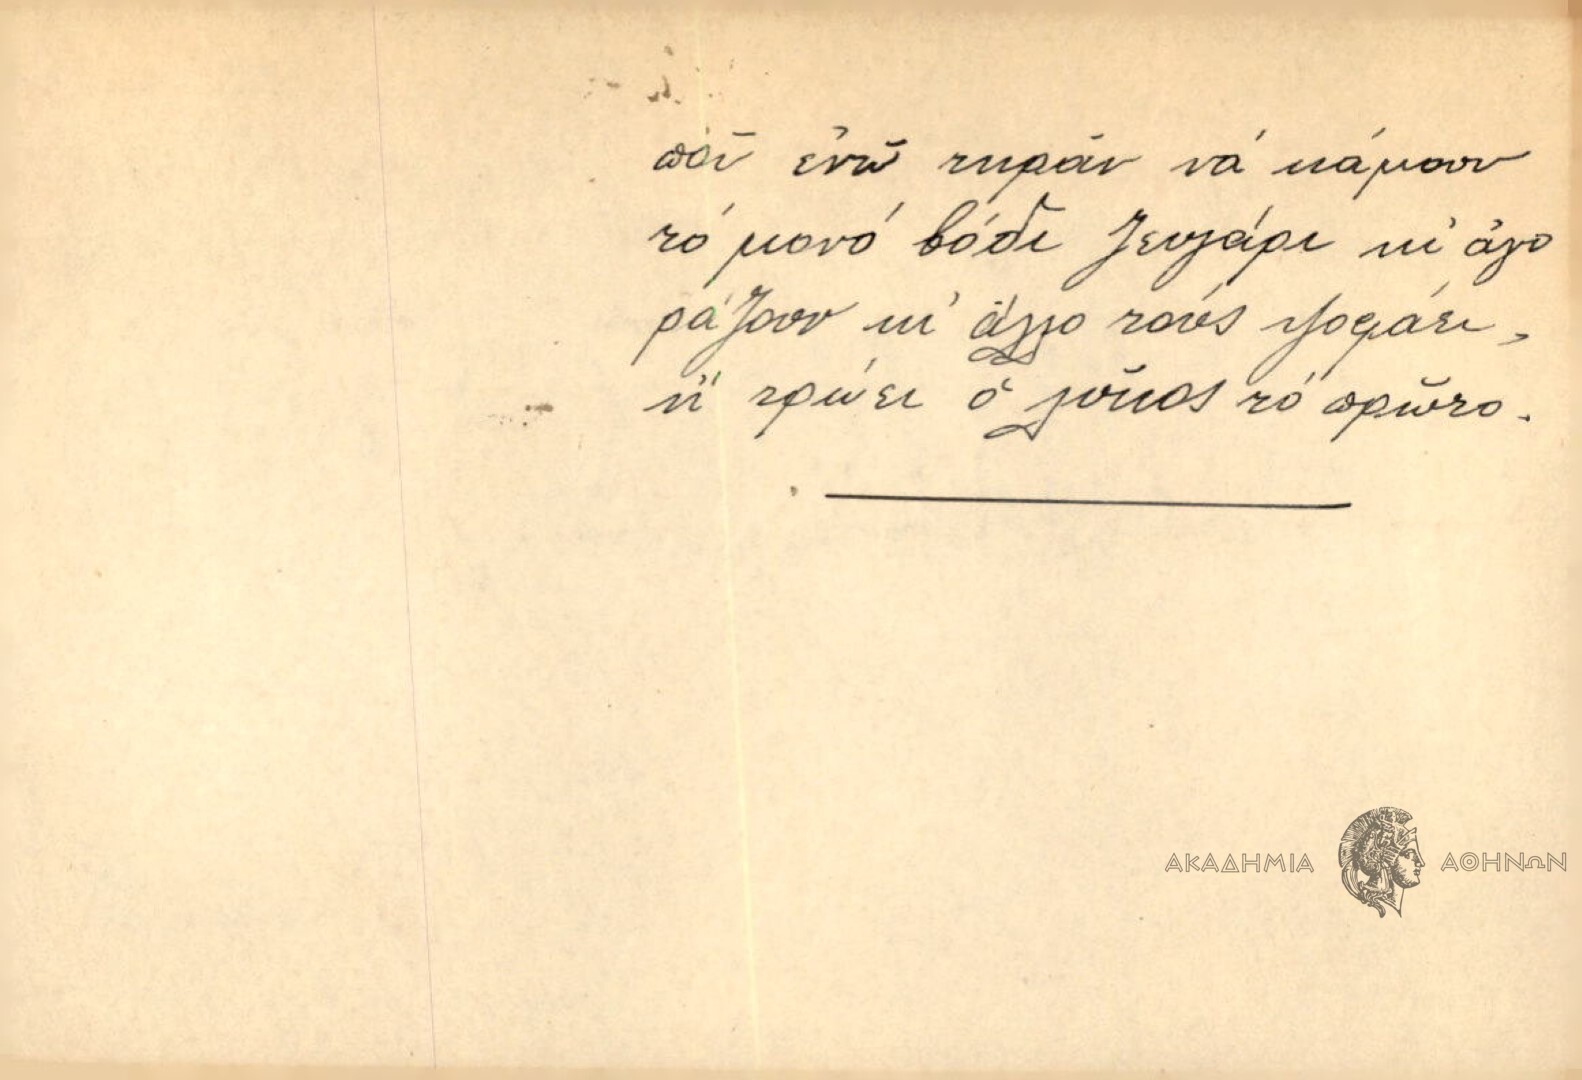 ποῦ ἐνῶ τηρᾶν νά κάμουν
τό μονό βόδι ζευγάρι κι' ἀγο
ράζουν κι' ἄλλο τούς ψοφάει,
ἤ τρώει ὁ λῦκος τό πρῶτο.
ΑΚΑΔΗΜΙΑ ΑΘΗΝΩΝ